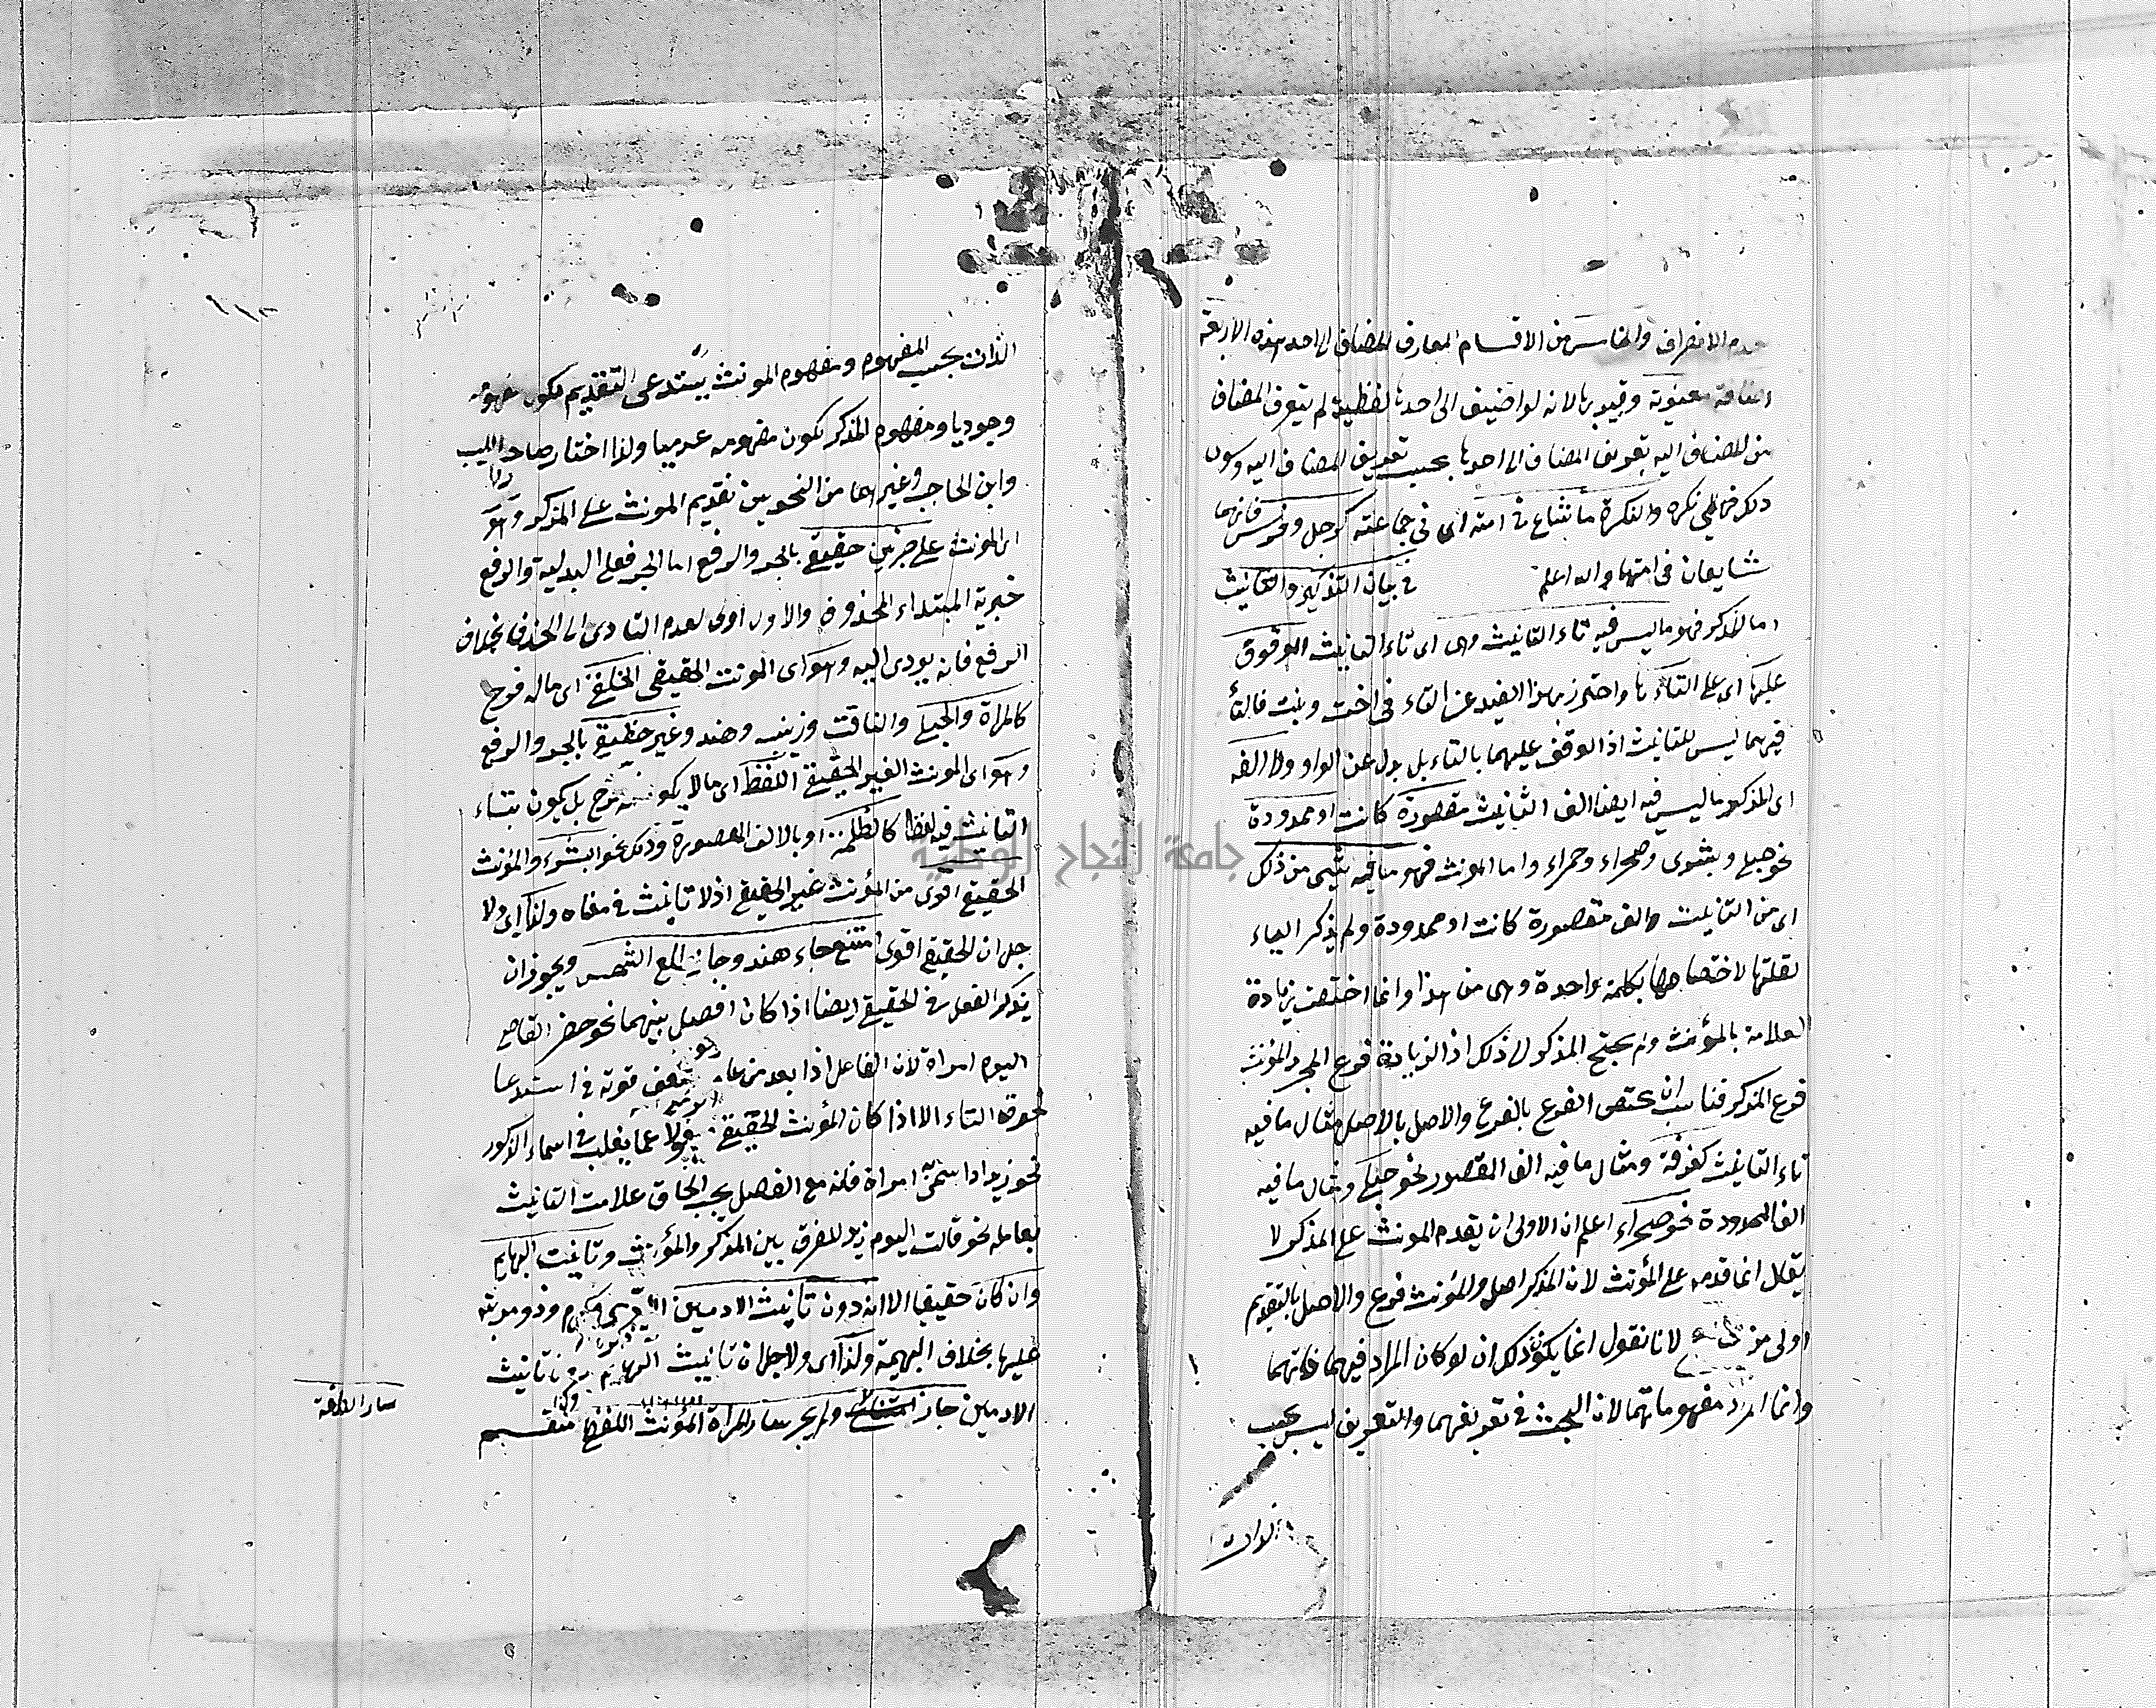 عدم الانصراف والخامس من الاقسام المعارف المضاف الى احد هذه الاربعة
اضافة معنوية وقيد بها لانه لو اضيف الى احدها لفظية لم يتعرف المضاف
من المضاف اليه بتعريف المضاف الى احدها بحسب تعريف المضاف اليه وسوى
ذلك فهي نكرة والنكرة ما شاع في امته اى في جماعته كرجل وفرس فانهما
شايعان في امتهما والله اعلم في بيان التذكير والتانيث
اما المذكر فهو ما ليس فيه تاء التانيث وهى اى تاء التانيث الموقوف
عليها اى على التاء ها واحترز بهذا القيد عن التاء في اخت وبنت فالتاء
فيهما ليس للتانيث اذا لوقف عليهما بالتاء بل بدل عن الواو ولا الفه
اى المذكر ما ليس فيه ايضا الف التانيث مقصورة كانت او ممدودة
نحو حبلى وبشرى وصحراء وحمراء واما المونث فهو ما فيه شئ من ذلك
اى من التانيث والف مقصورة كانت او ممدودة ولم يذكر الياء
لقلتها لاختصاصها بكلمة واحدة وهى من هذا وانما اختصت زيادة
العلامة بالمؤنث ولم يحتج المذكر لذلك اذ الزيادة فرع المجرد والمؤنث
فرع المذكر فناسب ان يختص الفرع بالفرع والاصل بالاصل مثال ما فيه
تاء التانيث كغرفة ومثال ما فيه الف المقصور نحو حبلى ومثال ما فيه
الف الممدودة نحو صحراء اعلم ان الاولى ان يقدم المونث على المذكر لا
يقال انما قدمه على المؤنث لان المذكر اصل والمؤنث فرع والاصل بالتقديم
اولى من لانا نقول انما يكون ذلك ان لو كان المراد فيهما ذاتهما
وانما المراد مفهوماتهما لان البحث في تعريفهما والتعريف ليس بحسب
الذات
الذات بحسب المفهوم ومفهوم المونث يستدعى التقديم لكون مفهومه
وجوديا ومفهوم المذكر لكون مفهومه عدميا ولذا اختار صاحب اللب
وابن الحاجب وغيرهما من النحويين تقديم المونث على المذكر وهو
اى المونث على ضربين حقيقي بالجر والرفع اما الجر فعلى البدلية والرفع
خبرية المبتداء المحذوف والاول اولى لعدم التادى الى الحذف بخلاف
الرفع فانه يودى اليه وهو اى المونث الحقيقي الخلقى اى ما له فرج
كالمراة والحبلى والناقة وزينب وهند وغير حقيقي بالجر والرفع
وهو اى المونث الغير الحقيقي اللفظى اى ما لا يكون له فرج بل يكون بتاء
التانيث فيه لفظا كالظلمة او بالالف المقصورة وذلك نحو البشرى والمؤنث
الحقيقي اقوى من المؤنث غير الحقيقي اذ لا تانيث في معناه ولذا اى ولا
جل ان الحقيقي اقوى امتنع جاء هند وجاز طلع الشمس ويجوز ان
يذكر الفعل في الحقيقي ايضا اذا كان افصل بينهما نحو حضر القاضي
اليوم امراة لان الفاعل اذا بعد من عا ضعف قوته في استدعا
لحوق التاء الا اذا كان المؤنث الحقيقي منقولا عما يغلب في اسماء الذكور
نحو زيد اذا سمى امراة فانه مع الفصل يجب الحاق علامت التانيث
بعامله نحو قالت اليوم زيد للفرق بين المذكر والمؤنث وتانيث البهايم
وان كان حقيقيا الا انه دون تانيث الادميين وذو مرتبة
عليها بخلاف البهيمة ولذا اى ولاجل ان تانيث دون تانيث
الادميين جاز ولم يجز سار المراة المؤنث اللفظى منقسم
سار الناقة